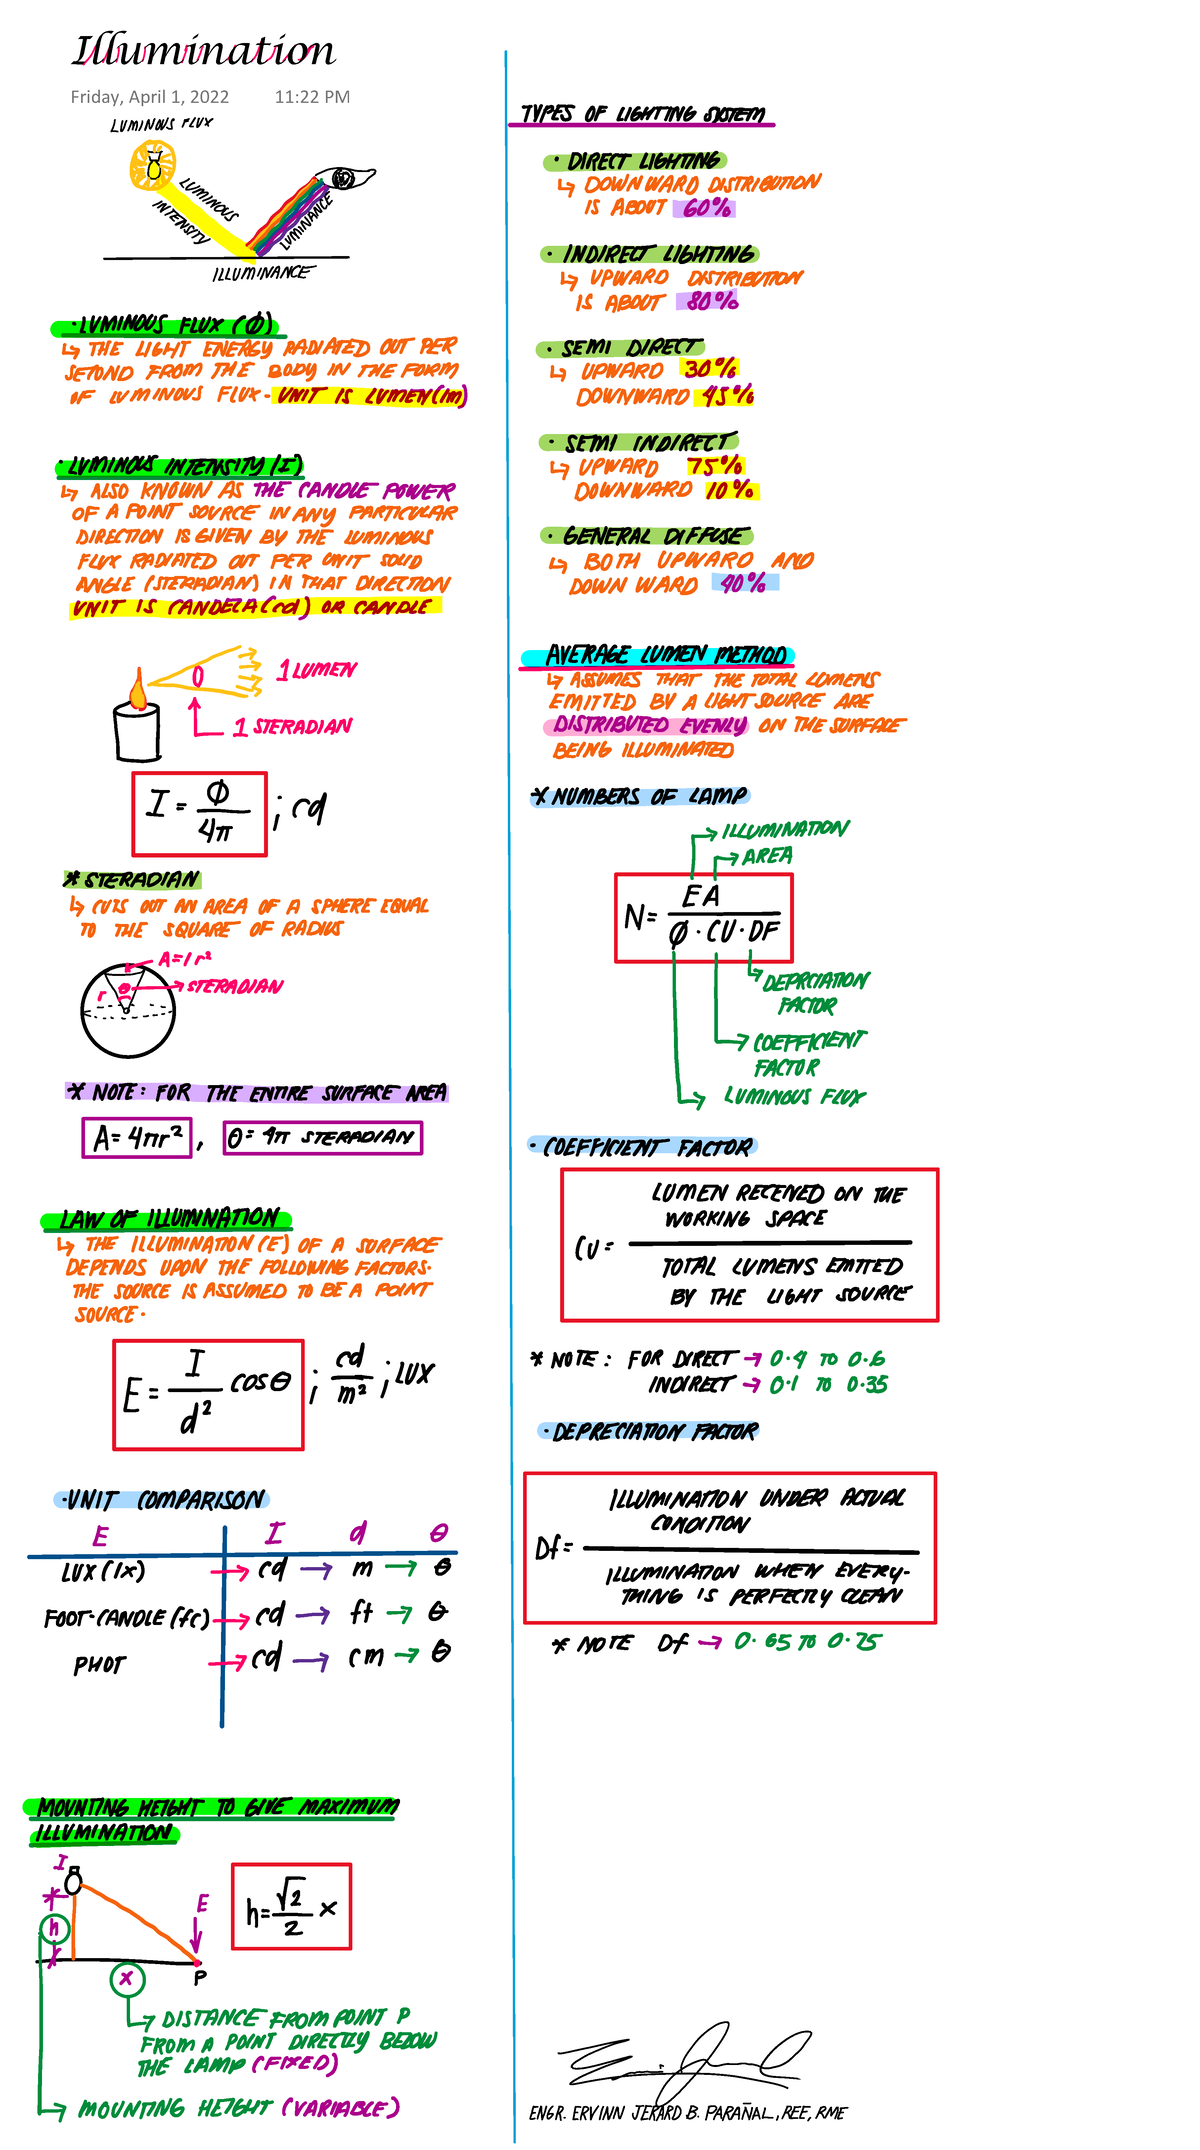 Illumination
Friday, April 1, 2022 11:22 PM
LUMINOUS FLUX
LUMINOUS
INTENSITY
LUMINANCE
ILLUMINANCE
· LUMINOUS FLUX (Ø)
↳ THE LIGHT ENERGY RADIATED OUT PER
SECOND FROM THE BODY IN THE FORM
OF LUMINOUS FLUX - UNIT IS LUMEN (lm)
· LUMINOUS INTENSITY (I)
↳ ALSO KNOWN AS THE CANDLE POWER
OF A POINT SOURCE IN ANY PARTICULAR
DIRECTION IS GIVEN BY THE LUMINOUS
FLUX RADIATED OUT PER UNIT SOLID
ANGLE (STERADIAN) IN THAT DIRECTION
UNIT IS CANDELA (cd) OR CANDLE
1 LUMEN
1 STERADIAN
I = Ø / 4π ; cd
* STERADIAN
↳ CUTS OUT AN AREA OF A SPHERE EQUAL
TO THE SQUARE OF RADIUS
A = 1 r²
r θ → STERADIAN
* NOTE: FOR THE ENTIRE SURFACE AREA
A = 4πr² , θ = 4π STERADIAN
LAW OF ILLUMINNATION
↳ THE ILLUMINATION (E) OF A SURFACE
DEPENDS UPON THE FOLLOWING FACTORS.
THE SOURCE IS ASSUMED TO BE A POINT
SOURCE.
E = I / d² COS θ ; cd / m² ; LUX
· UNIT COMPARISON
E I d θ
LUX (lx) → cd → m → θ
FOOT-CANDLE (fc) → cd → ft → θ
PHOT → cd → cm → θ
MOUNTING HEIGHT TO GIVE MAXIMUM
ILLUMINATION
I
h
E
x
P
h = √2 / 2 x
↳ DISTANCE FROM POINT P
FROM A POINT DIRECTLY BELOW
THE LAMP (FIXED)
↳ MOUNTING HEIGHT (VARIABLE)
TYPES OF LIGHTING SYSTEM
· DIRECT LIGHTING
↳ DOWNWARD DISTRIBUTION
IS ABOUT 60%
· INDIRECT LIGHTING
↳ UPWARD DISTRIBUTION
IS ABOUT 80%
· SEMI DIRECT
↳ UPWARD 30%
DOWNWARD 45%
· SEMI INDIRECT
↳ UPWARD 75%
DOWNWARD 10%
· GENERAL DIFFUSE
↳ BOTH UPWARD AND
DOWN WARD 40%
AVERAGE LUMEN METHOD
↳ ASSUMES THAT THE TOTAL LUMENS
EMITTED BY A LIGHT SOURCE ARE
DISTRIBUTED EVENLY ON THE SURFACE
BEING ILLUMINATED
* NUMBERS OF LAMP
→ ILLUMINATION
→ AREA
N = EA / Ø · CU · DF
DEPRCIATION
FACTOR
→ COEFFICIENT
FACTOR
→ LUMINOUS FLUX
· COEFFICIENT FACTOR
LUMEN RECEIVED ON THE
WORKING SPACE
CU =
TOTAL LUMENS EMITTED
BY THE LIGHT SOURCE
* NOTE: FOR DIRECT → 0.4 TO 0.6
INDIRECT → 0.1 TO 0.35
· DEPRECIATION FACTOR
ILLUMINATION UNDER ACTUAL
CONDITION
Df =
ILLUMINATION WHEN EVERY-
THING IS PERFECTLY CLEAN
* NOTE Df → 0.65 TO 0.75
ENGR. ERVINN JERARD B. PARAÑAL, REE, RME